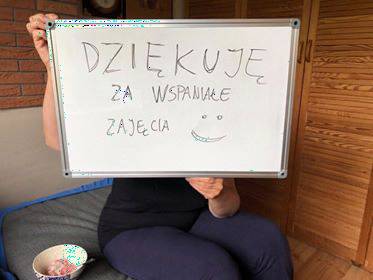 DZIĘKUJĘ
ZA WSPANIAŁE
ZAJĘCIA